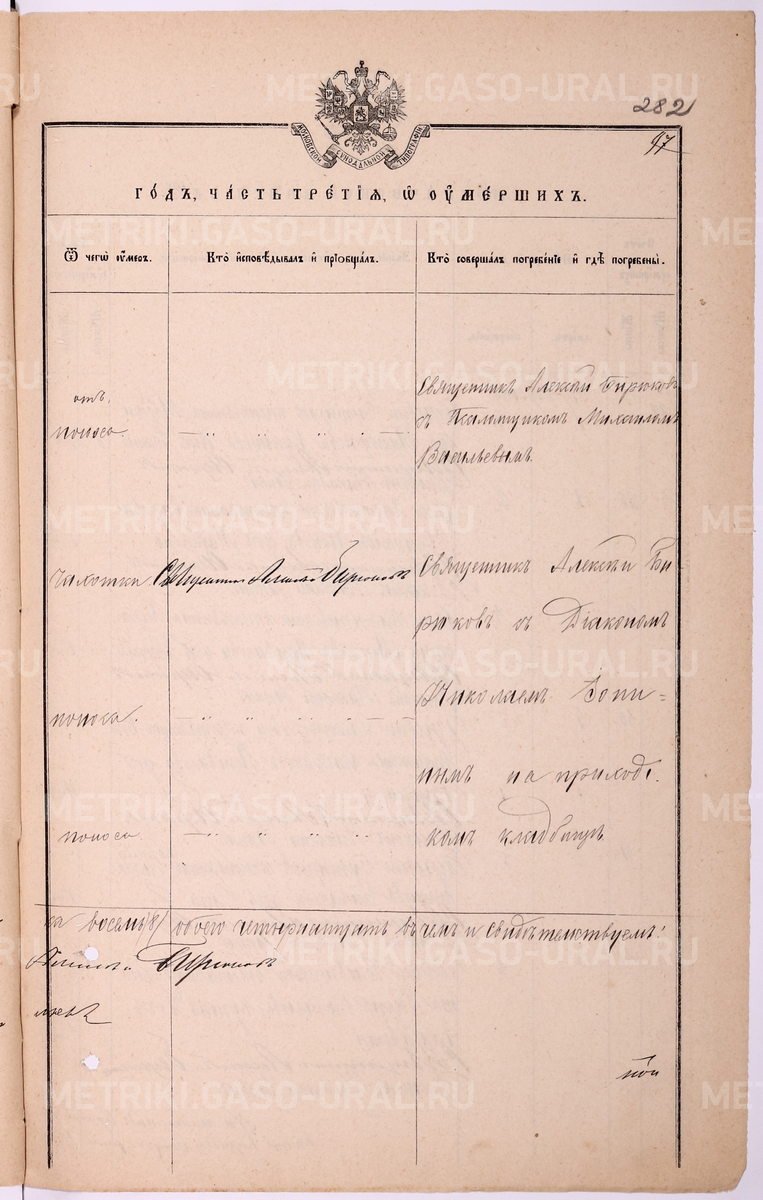 282
47
МОСКОВСКОЙ СѴНОДАЛЬНОЙ ТИПОГРАФІИ
ГО́ДЪ, ЧА́СТЬ ТРЕ́ТІѦ, Ѡ҆ ОУ҆МЕ́РШИХЪ.
Ѿ чегѡ̀ оу҆́меръ.
Кто̀ и҆сповѣ́дывалъ и҆ прїѡбща́лъ.
Кто̀ соверша́лъ погребе́нїе и҆ гдѣ̀ погребены̀.
отъ
поноса.
Священникъ Алексѣй Бирюковъ
съ Псаломщикомъ Михаиломъ
Васильевымъ.
Чахотки
Священникъ Алексѣй Бирюковъ
Священникъ Алексѣй Би
рюковъ съ Діакономъ
поноса.
Николаемъ
нымъ на приходс
поноса.
комъ кладбищѣ
восемь /8/ обоего четырнадцать въ чемъ и свидѣтельствуемъ:
Алексѣй Бирюковъ
METRIKI.GASO-URAL.RU